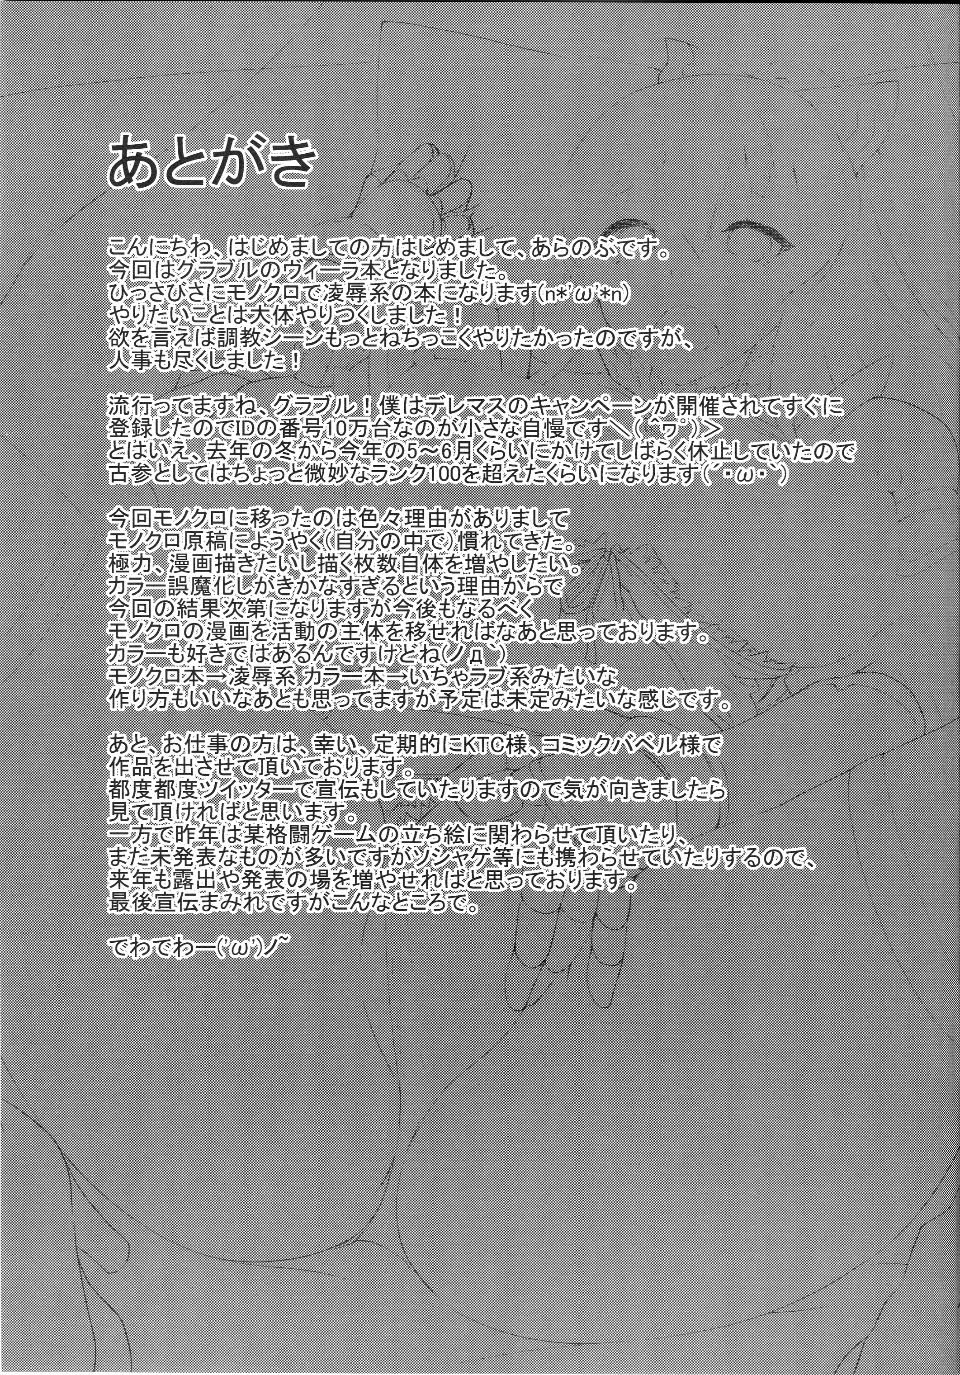 あとがき
こんにちわ、はじめましての方はじめまして、あらのぶです。
今回はグラブルのヴィーラ本となりました。
ひっさびさにモノクロで凌辱系の本になります(n*'ω'*n)
やりたいことは大体やりつくしました！
欲を言えば調教シーンもっとねちっこくやりたかったのですが、
人事も尽くしました！
流行ってますね、グラブル！僕はデレマスのキャンペーンが開催されてすぐに
登録したのでIDの番号10万台なのが小さな自慢です＼( ﾟヮﾟ)＞
とはいえ、去年の冬から今年の5～6月くらいにかけてしばらく休止していたので
古参としてはちょっと微妙なランク100を超えたくらいになります(´･ω･`)
今回モノクロに移ったのは色々理由がありまして
モノクロ原稿にようやく(自分の中で)慣れてきた。
極力、漫画描きたいし描く枚数自体を増やしたい。
カラー誤魔化しがきかなすぎるという理由からで
今回の結果次第になりますが今後もなるべく
モノクロの漫画を活動の主体を移せればなあと思っております。
カラーも好きではあるんですけどね(ノД`)
モノクロ本→凌辱系 カラー本→いちゃラブ系みたいな
作り方もいいなあとも思ってますが予定は未定みたいな感じです。
あと、お仕事の方は、幸い、定期的にKTC様、コミックバベル様で
作品を出させて頂いております。
都度都度ツイッターで宣伝もしていたりますので気が向きましたら
見て頂ければと思います。
一方で昨年は某格闘ゲームの立ち絵に関わらせて頂いたり、
まだ未発表なものが多いですがソシャゲ等にも携わらせていたりするので、
来年も露出や発表の場を増やせればと思っております。
最後宣伝まみれですがこんなところで。
でわでわー('ω')ノ~